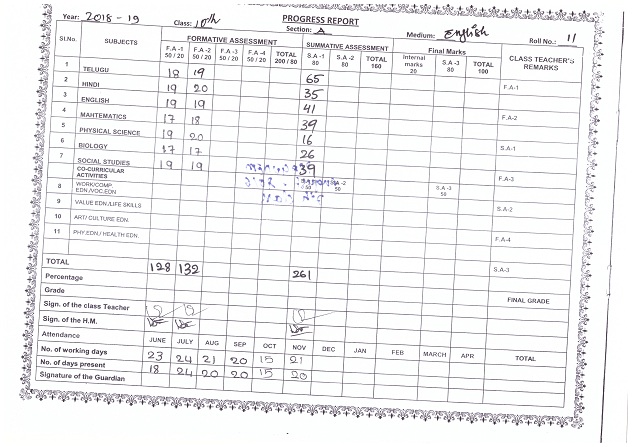 PROGRESS REPORT
Year: 2018-19 Class: 10th Section: A Medium: English Roll No.: 11
Sl.No. SUBJECTS FORMATIVE ASSESSMENT SUMMATIVE ASSESSMENT Final Marks CLASS TEACHER'S REMARKS
F.A-1 50/20 F.A-2 50/20 F.A-3 50/20 F.A-4 50/20 TOTAL 200/80 S.A-1 80 S.A-2 80 TOTAL 160 Internal marks 20 S.A-3 80 TOTAL 100
1 TELUGU 18 19 65 F.A-1
2 HINDI 19 20 35
3 ENGLISH 19 19 41 F.A-2
4 MAHTEMATICS 17 18 39
5 PHYSICAL SCIENCE 19 20 16 S.A-1
6 BIOLOGY 17 17 26
7 SOCIAL STUDIES 19 19 39 F.A-3
CO-CURRICULAR ACTIVITIES
8 WORK/COMP. EDN./VOC.EDN 50 S.A-2 50 S.A-3 50
9 VALUE EDN./LIFE SKILLS S.A-2
10 ART/ CULTURE EDN.
11 PHY.EDN./ HEALTH EDN. F.A-4
TOTAL 128 132 261 S.A-3
Percentage
Grade FINAL GRADE
Sign. of the class Teacher
Sign. of the H.M.
Attendance JUNE JULY AUG SEP OCT NOV DEC JAN FEB MARCH APR TOTAL
No. of working days 23 24 21 20 15 21
No. of days present 18 24 20 20 15 20
Signature of the Guardian